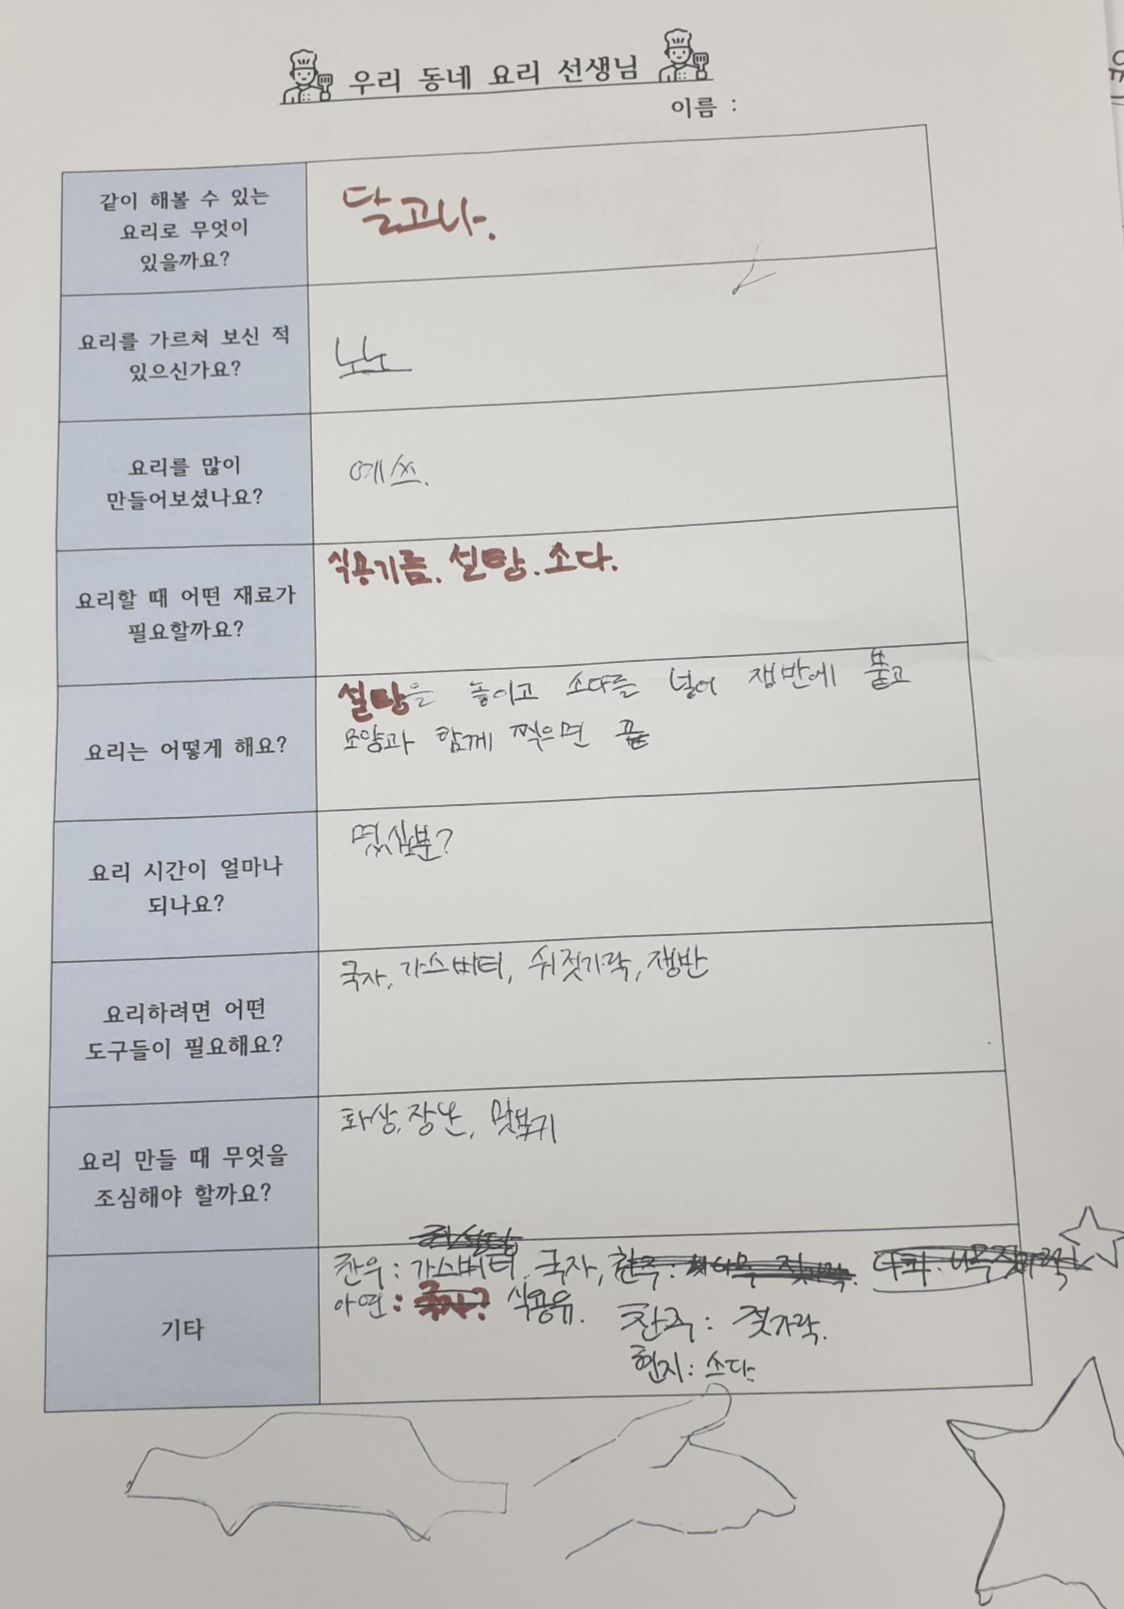 우리 동네 요리 선생님
이름 :
같이 해볼 수 있는
요리로 무엇이
있을까요?
달고나.
요리를 가르쳐 보신 적
있으신가요?
노노
요리를 많이
만들어보셨나요?
예쓰.
요리할 때 어떤 재료가
필요할까요?
식용기름. 설탕. 소다.
요리는 어떻게 해요?
설탕을 놓이고 소다를 넣어 쟁반에 붙고
모양과 함께 찍으면 끝
요리 시간이 얼마나
되나요?
몇십분?
요리하려면 어떤
도구들이 필요해요?
국자, 가스버터, 쉬젓가락, 쟁반
요리 만들 때 무엇을
조심해야 할까요?
화상, 장난, 맛보기
기타
찬우 : 가스버터, 국자,
아연 : 식용유.
찬주 : 젓가락.
현지 : 쏘다.